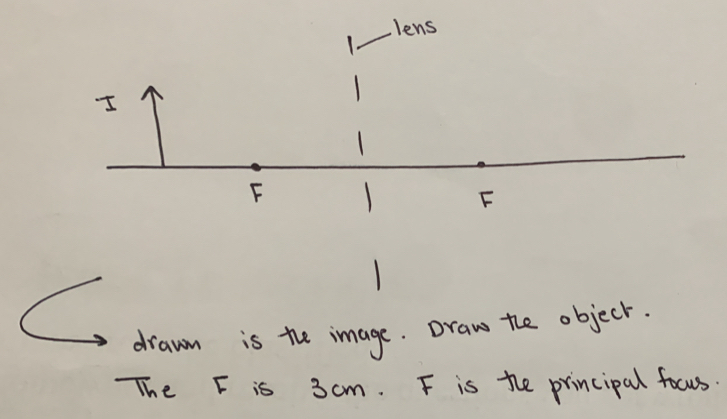 lens
I
F
F
drawn is the image. Draw the object.
The F is 3cm. F is the principal focus.